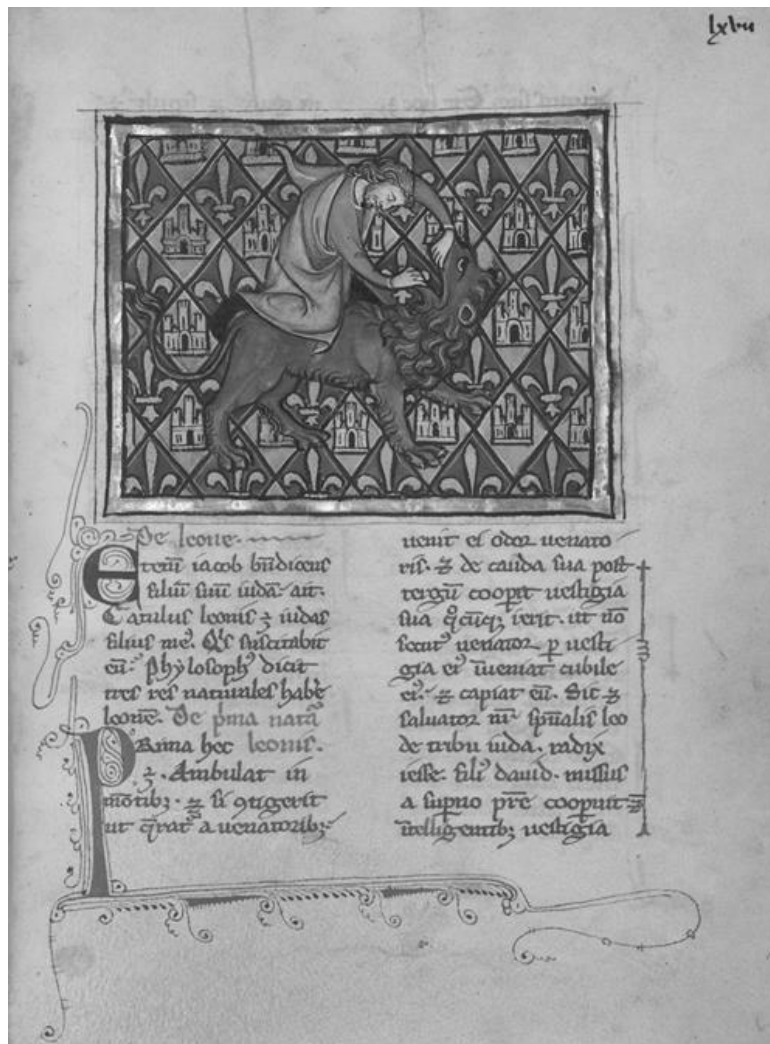 lxvii
De leone.
Etenı̄ iacob bn̄dicens
filiū suū iudā. ait.
Catulus leonis ⁊ iudas
filius meꝰ. Qͥs suscitabit
eū. Phylosophꝰ dicit
tres res naturales habe
leonē. De pͥma natᷓ
Prima hec leonis.
Ambulat in
mōtibꝫ. ⁊ si ꝯtigerit
ut qͣrat᷑ a uenatoribꝫ
uenit ei odor uenato
ris. ⁊ de cauda sua post
tergū cooꝑit uestigia
sua qͦcūqꝫ ierit. ut nō
secutꝰ uenator ꝑ uesti
gia eiꝰ īueniat cubile
eiꝰ. ⁊ capiat eū. Sic ⁊
saluator nr̄ sp̄ualis leo
de tribu iuda. radix
iesse. filiꝰ dauid. missus
a suꝑno p̄re cooꝑuit
ītelligentibꝫ uestigia